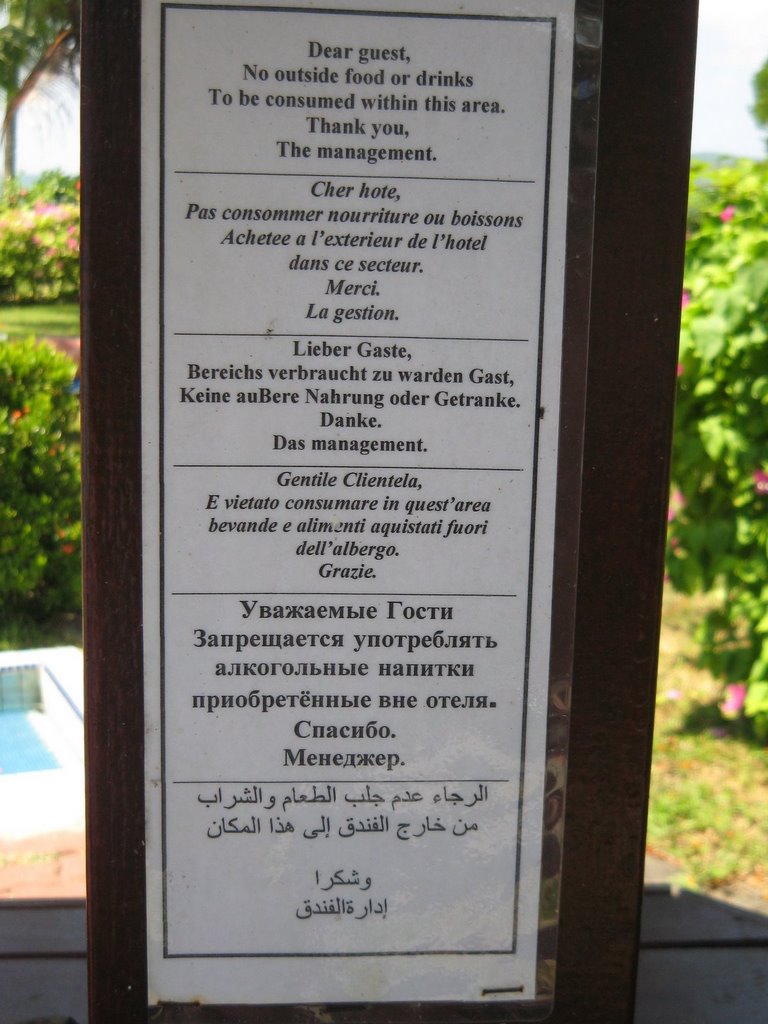 Dear guest,
No outside food or drinks
To be consumed within this area.
Thank you,
The management.
Cher hote,
Pas consommer nourriture ou boissons
Achetee a l'exterieur de l'hotel
dans ce secteur.
Merci.
La gestion.
Lieber Gaste,
Bereichs verbraucht zu warden Gast,
Keine auBere Nahrung oder Getranke.
Danke.
Das management.
Gentile Clientela,
E vietato consumare in quest'area
bevande e alimenti aquistati fuori
dell'albergo.
Grazie.
Уважаемые Гости
Запрещается употреблять
алкогольные напитки
приобретённые вне отеля.
Спасибо.
Менеджер.
الرجاء عدم جلب الطعام والشراب
من خارج الفندق إلى هذا المكان
وشكرا
إدارةالفندق